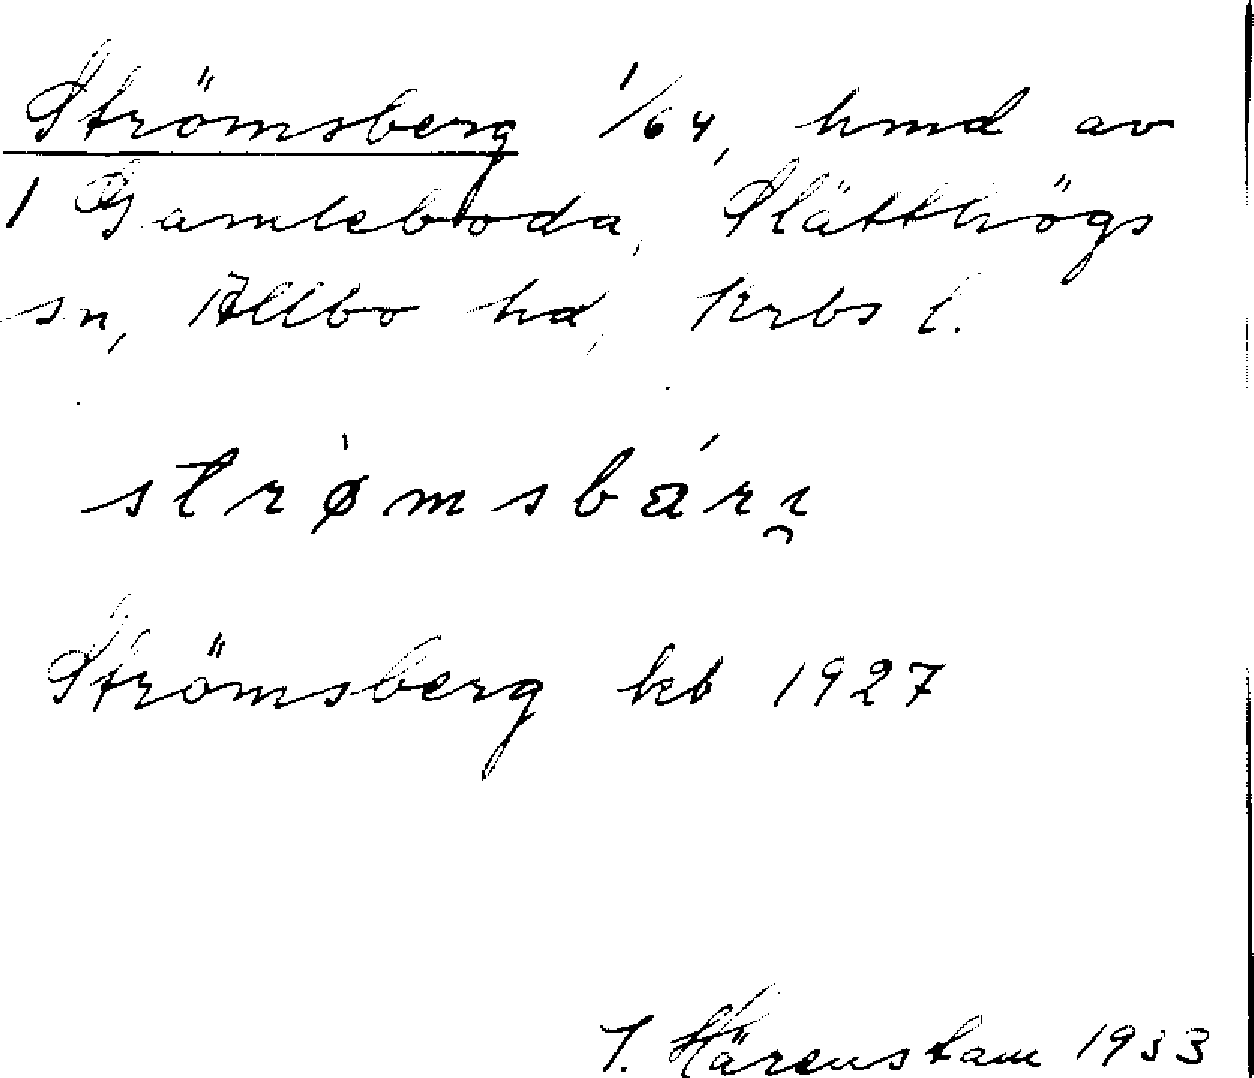 Strömsberg 1/64, hmd av
1 Gamleboda, Slätthögs
sn, Allbo hd, Krbs l.
strømsbäri̯
Strömsberg kb 1927
I. Härenstam 1933